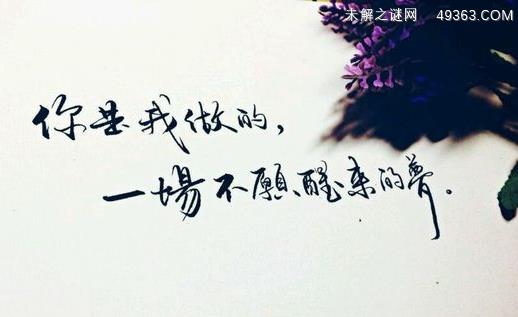 未解之谜网 49363.COM
你是我做的，
一場不願醒来的夢。